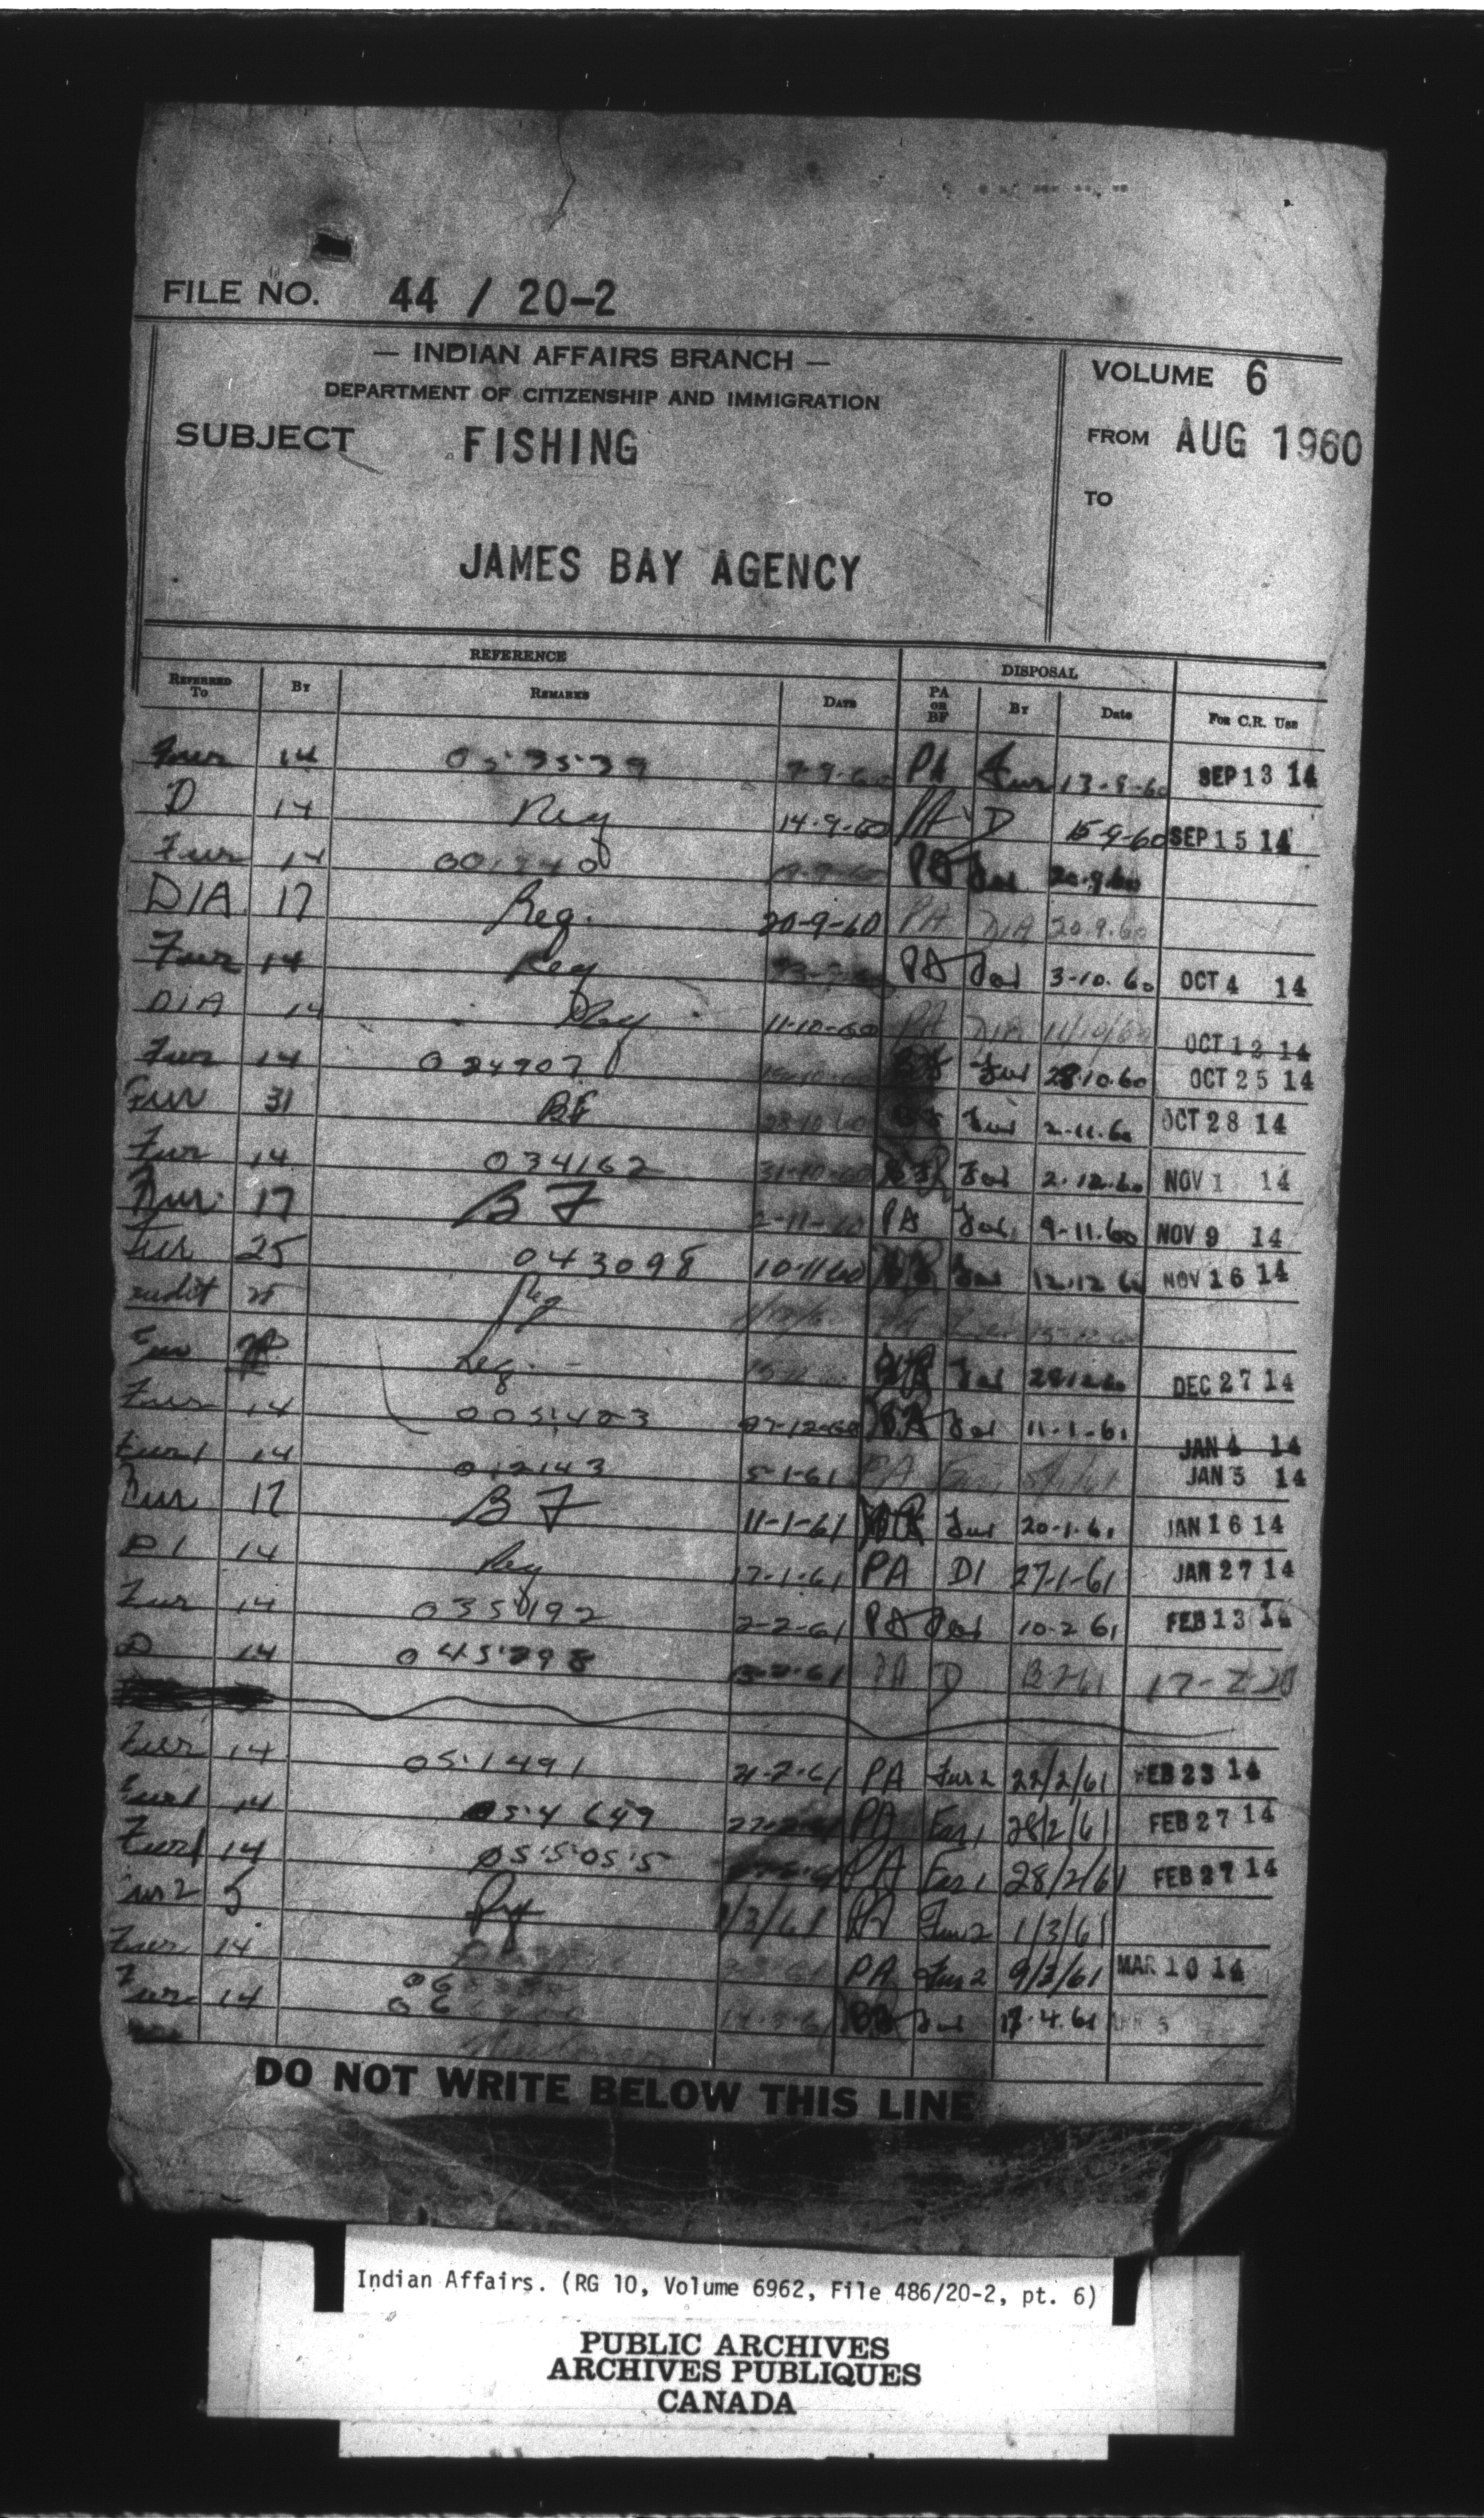 FILE NO. 44 / 20-2
— INDIAN AFFAIRS BRANCH —
DEPARTMENT OF CITIZENSHIP AND IMMIGRATION
SUBJECT FISHING
JAMES BAY AGENCY
VOLUME 6
FROM AUG 1960
TO
REFERENCE DISPOSAL
REFERRED TO BY REMARKS DATE PA OR BF BY Date FOR C.R. USE
Fur 14 PA Fur 13-9-60 SEP 13 14
D 14 Reg 14-9-60 D 15-9-60 SEP 15 14
Fur 14 PA Fur 20.9.60
DIA 17 Reg. 20-9-60 PA DIA 20.9.60
Fur 14 Reg PA 3-10.60 OCT 4 14
DIA 14 Reg 11-10-60 PA DIA 11/10/60 OCT 12 14
Fur 14 024907 Fur 28.10.60 OCT 25 14
Fur 31 BF 28-10-60 Fur 2-11.60 OCT 28 14
Fur 14 034162 31-10-60 Fur 2.12.60 NOV 1 14
Fur 17 BF 2-11-60 PA Fur 9-11.60 NOV 9 14
Fur 25 043098 10-11-60 Fur 12.12.60 NOV 16 14
audit 25 Reg
Fur Reg. Fur DEC 27 14
Fur 14 005423 27-12-60 Fur 11-1-61 JAN 4 14
Fur1 14 012143 5-1-61 PA JAN 5 14
Fur 17 BF 11-1-61 Fur 20-1-61 JAN 16 14
DI 14 Reg 17-1-61 PA DI 27-1-61 JAN 27 14
Fur 14 035192 2-2-61 PA Fur 10-2-61 FEB 13 14
D 14 045298 13-2-61 PA D
Fur 14 051491 21-2-61 PA Fur2 22/2/61 FEB 23 14
Fur1 14 054649 PA Fur1 28/2/61 FEB 27 14
Fur1 14 055055 PA Fur1 28/2/61 FEB 27 14
Fur2 5 1/3/61 PA Fur2 1/3/61
Fur 14 PA Fur2 9/3/61 MAR 10 14
Fur 14 Fur
DO NOT WRITE BELOW THIS LINE
Indian Affairs. (RG 10, Volume 6962, File 486/20-2, pt. 6)
PUBLIC ARCHIVES
ARCHIVES PUBLIQUES
CANADA